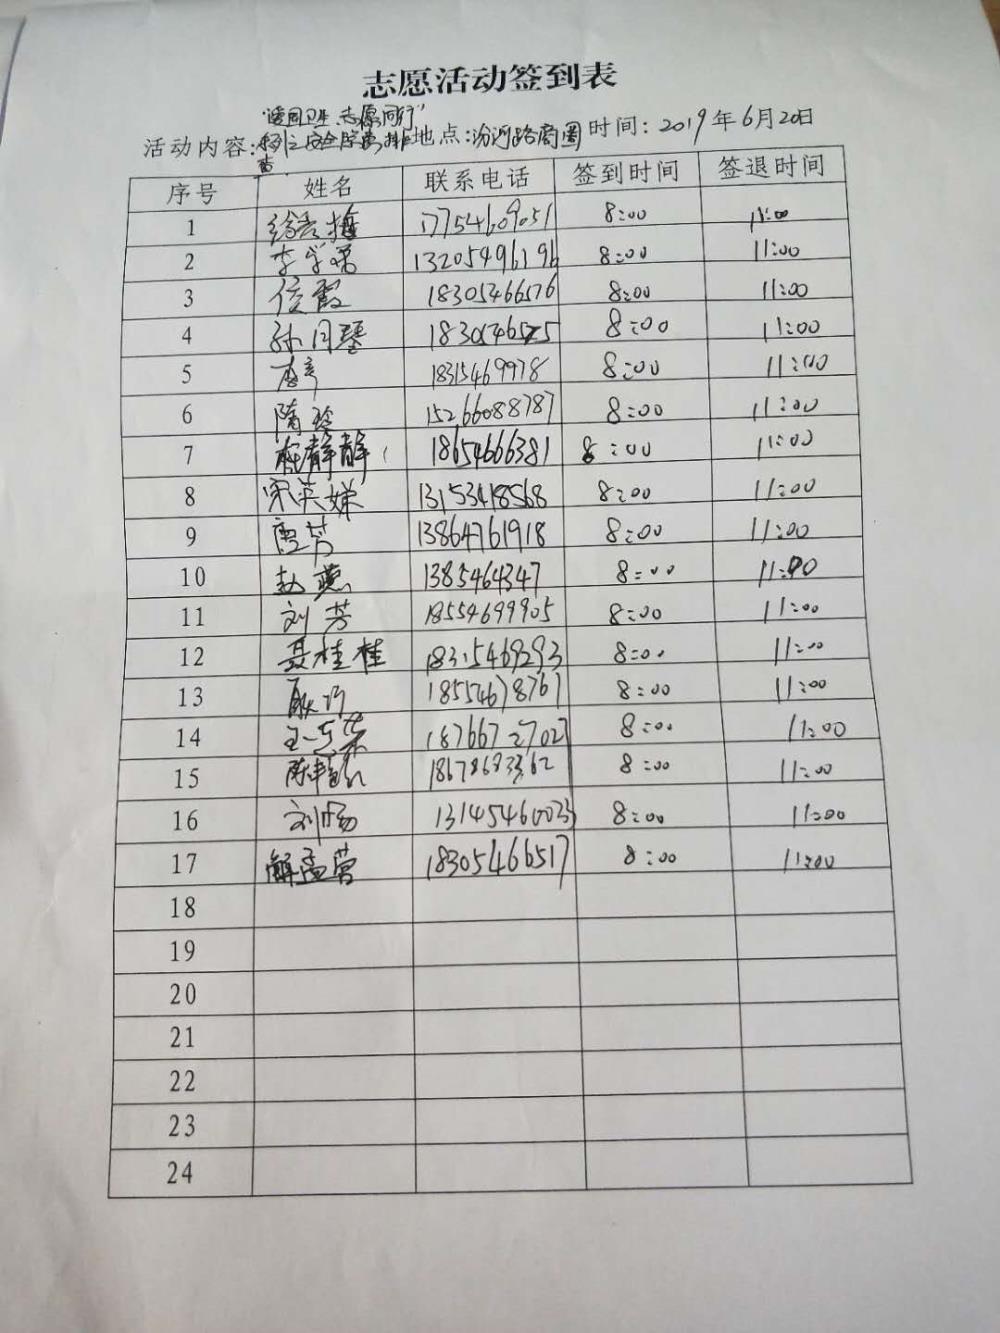 志愿活动签到表
志愿同行"
活动内容: 地点: 汾河路商圈 时间: 2019年6月20日
查
序号 姓名 联系电话 签到时间 签退时间
1 17754609051 8:00 11:00
2 李学荣 13205496196 8:00 11:00
3 侯霞 18305466576 8:00 11:00
4 孙月琴 8:00 11:00
5 18315469978 8:00 11:00
6 隋玲 15266088787 8:00 11:00
7 杜静静 18654666381 8:00 11:00
8 宋英娣 13153418568 8:00 11:00
9 唐芳 13864761918 8:00 11:00
10 赵燕 1385464347 8:00 11:00
11 刘芳 18554699905 8:00 11:00
12 聂桂桂 18315469293 8:00 11:00
13 耿巧 18554678767 8:00 11:00
14 18766727027 8:00 11:00
15 18678683362 8:00 11:00
16 刘杨 13145460023 8:00 11:00
17 解孟营 18305466517 8:00 11:00
18
19
20
21
22
23
24